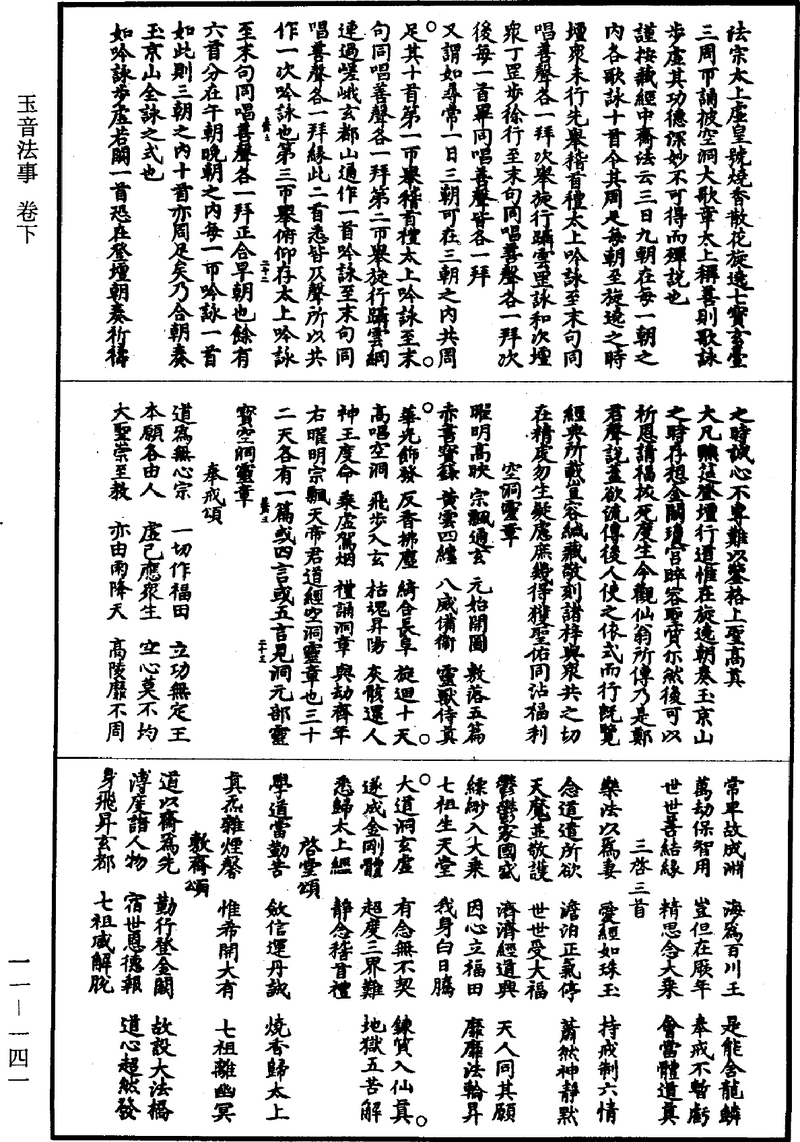 玉音法事 卷下
一一—一四一
法宗太上虛皇號燒香散花旋遶七寶玄臺
三周帀誦披空洞大歌章太上稱善則歌詠
步虛其功德深妙不可得而禪說也
謹按藏經中齋法云三日九朝在每一朝之
內各歌詠十首令其周足每朝至旋遶之時
壇眾未行先舉稽首禮太上吟詠至末句同
唱善聲各一拜次舉旋行躡雲罡詠和次壇
眾丁罡步徐行至末句同唱善聲各一拜次
後每一首畢同唱善聲皆各一拜
又謂如尋常一日三朝可在三朝之內共周
足其十首第一帀舉稽首禮太上吟詠至末
句同唱善聲各一拜第二帀舉旋行躡雲綱
連過嵯峨玄都山通作一首吟詠至末句同
唱善聲各一拜緣此二首悉皆仄聲所以共
作一次吟詠也第三帀舉俯仰存太上吟詠
至末句同唱善聲各一拜正合早朝也餘有
六首分在午朝晚朝之內每一帀吟詠一首
如此則三朝之內十首亦周足矣乃合朝奏
玉京山全詠之式也
如吟詠步虛若闕一首恐在登壇朝奏祈禱
之時誠心不專難以鑒格上聖高真
大凡醮筵登壇行道惟在旋遶朝奏玉京山
之時存想金闕瓊宮晬容聖質尒然後可以
祈恩請福拔死度生今觀仙翁所傳乃是鄭
君聲說蓋欲流傳後人使之依式而行既覽
經典所載豈容緘藏敬刻諸梓與眾共之切
在精虔勿生疑應庶幾得獲聖佑同沾福利
空洞靈章
曜明高映 宗飄過玄 元始開圖 敷落五篇
赤書寶籙 黃雲四纏 八威備衛 靈獸侍真
華光飾發 反香拂塵 綺合長阜 旋迴十天
高唱空洞 飛步入玄 枯魂昇陽 灰骸還人
神王度命 乘虛駕烟 禮誦洞章 與劫齊年
右曜明宗飄天帝君道經空洞靈章也三十
二天各有一篇或四言或五言見洞元部靈
寶空洞靈章
奉戒頌
道為無心宗 一切作福田 立功無定王
本願各由人 虛己應眾生 空心莫不均
大聖崇至教 亦由雨降天 高陵靡不周
常卑故成淵 海為百川王 是能舍龍鱗
萬劫保智用 豈但在厥年 奉戒不暫虧
世世善結緣 精思念大乘 會當體道真
三啓三首
樂法以為妻 愛經如珠玉 持戒制六情
念道遣所欲 澹泊正氣停 蕭然神靜默
天魔並敬護 世世受大福
鬱鬱家國盛 濟濟經道興 天人同其願
縹緲入大乘 因心立福田 靡靡法輪昇
七祖生天堂 我身白日騰
大道洞玄虛 有念無不契 鍊質入仙真
遂成金剛體 超度三界難 地獄五苦解
悉歸太上經 靜念稽首禮
啓堂頌
學道當勤苦 斂信運丹誠 燒香歸太上
真炁雜煙馨 惟希開大有 七祖離幽冥
敷齋頌
道以齋為先 勤行登金闕 故設大法橋
溥度諸人物 宿世恩德報 道心超然發
身飛昇玄都 七祖咸解脫